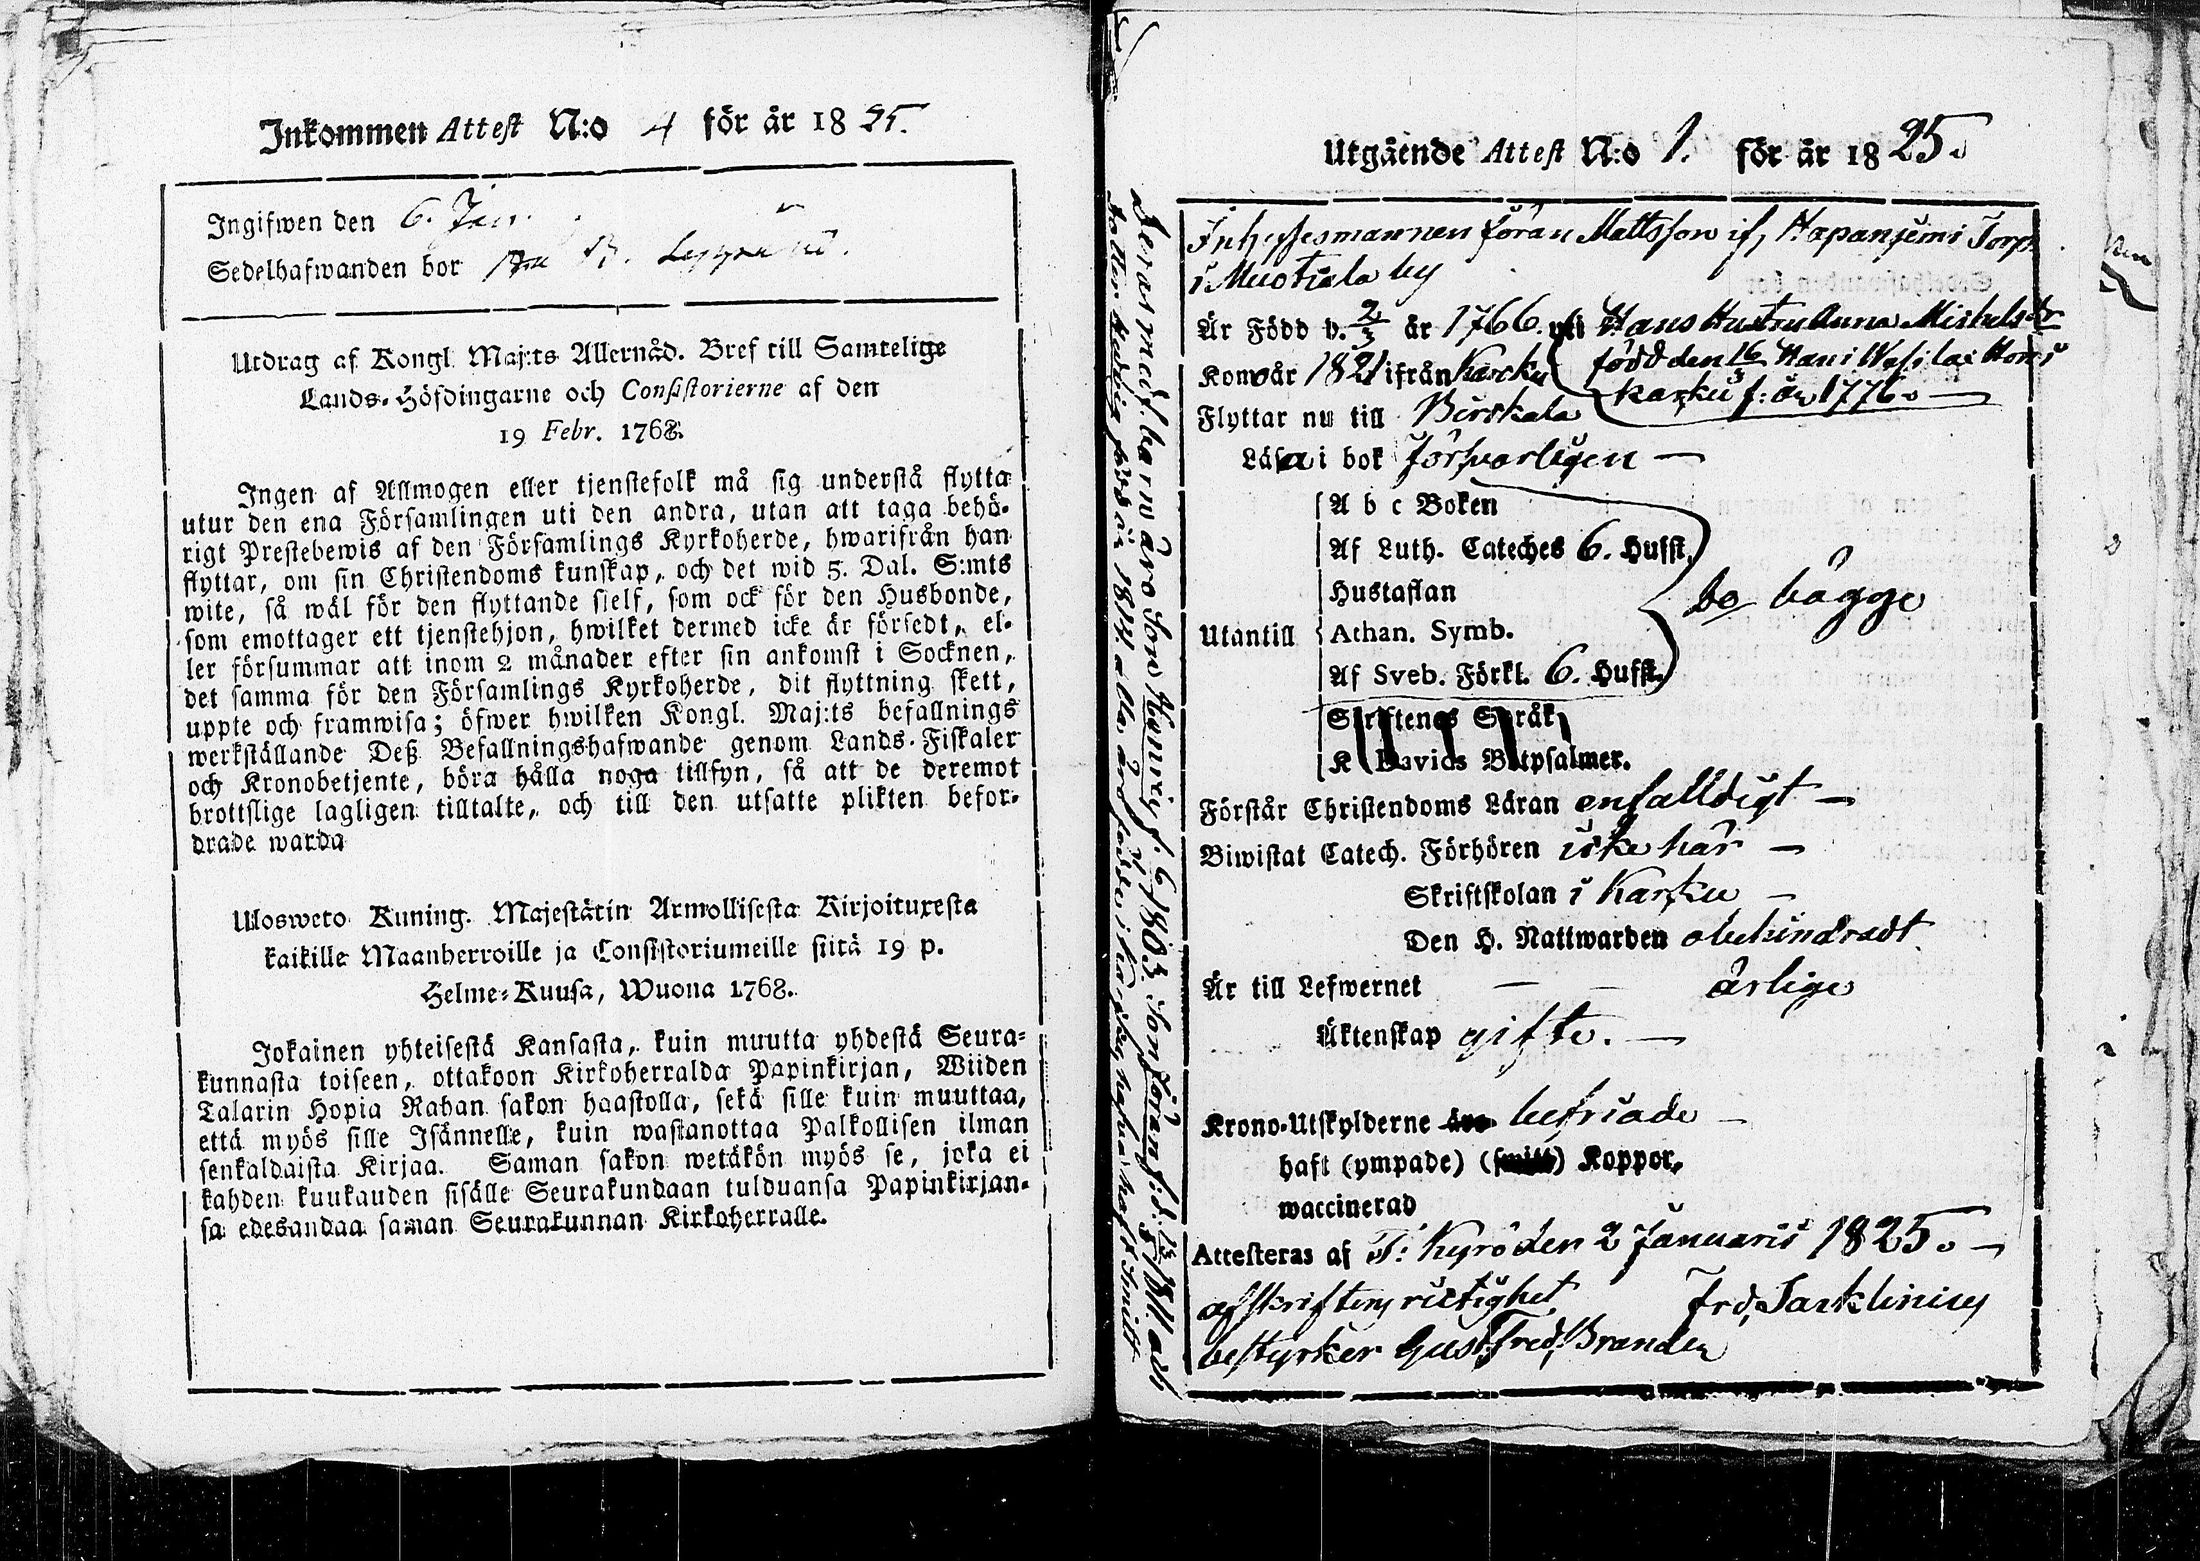 Inkommen Attest N:o 4 för år 1825.
Ingifwen den 6. Jan.
Sedelhafwanden bor
Utdrag af Kongl. Maj:ts Allernåd. Bref till Samtelige
Lands-Höfdingarne och Consistorierne af den
19 Febr. 1768.
Ingen af Allmogen eller tjenstefolk må sig understå flytta
utur den ena Församlingen uti den andra, utan att taga behö-
rigt Prestebewis af den Församlings Kyrkoherde, hwarifrån han
flyttar, om sin Christendoms kunskap, och det wid 5. Dal. S:mts
wite, så wäl för den flyttande sielf, som ock för den Husbonde,
som emottager ett tjenstehjon, hwilket dermed icke är försedt, el-
ler försummar att inom 2 månader efter sin ankomst i Socknen,
det samma för den Församlings Kyrkoherde, dit flyttning skett,
uppte och framwisa; öfwer hwilken Kongl. Maj:ts befallnings
werkställande Deß Befallningshafwande genom Lands-Fiskaler
och Kronobetjente, böra hålla noga tillsyn, så att de deremot
brottslige lagligen tilltalte, och till den utsatte plikten befor-
drade warda
Ulosweto Kuning. Majestätin Armollisesta Kirjoituxesta
kaikille Maanherroille ja Consistoriumeille siitä 19 p.
Helme-Kuusa, Wuona 1768.
Jokainen yhteisestä Kansasta, kuin muutta yhdestä Seura-
kunnasta toiseen, ottakoon Kirkoherralda Papinkirjan, Wiiden
Talarin Hopia Rahan sakon haastolla, sekä sille kuin muuttaa,
että myös sille Isännelle, kuin wastanottaa Palkollisen ilman
senkaldaista Kirjaa. Saman sakon wetäkön myös se, joka ei
kahden kuukauden sisälle Seurakundaan tulduansa Papinkirjan-
sa edesandaa saman Seurakunnan Kirkoherralle.
Utgående Attest N:o 1. för år 1825.
Inhysesmannen Jöran Mattsson if, Hapanjemi Torp
i Muotiala by
Är Född d. 2/3 år 1766. Hans Hustru Anna Mickelsdr
Kom år 1821 ifrån Karcku född den 16/3
Karku f: år 1776.
Flyttar nu till Birckala
Läsa i bok försvarligen
A b c Boken
Af Luth. Cateches 6. Hufst.
Hustaflan
Utantill Athan. Symb. bägge
Af Sveb. Förkl. 6. Hufst.
Skriftenes Språk
K Davids Botpsalmer.
Förstår Christendoms Läran enfalldigt
Biwistat Catech. Förhören icke här
Skriftskolan i Karcku
Den H. Nattwarden obehindradt
Är till Lefwernet ärlige
Äktenskap gifte.
Krono-Utskylderne befriade
haft (ympade) Koppor,
waccinerad
Attesteras af T: Kyro den 2 Januarii 1825.
afskriftens riktighet Frd,
bestyrker Gust. Fred, Brander
Deras med f. barn äro Son Henric f. 1803. Son Jöran f: d. 1811. och
dotter Hedvig född år 1814 alla äro födde i Karcku, hafva haft smitt